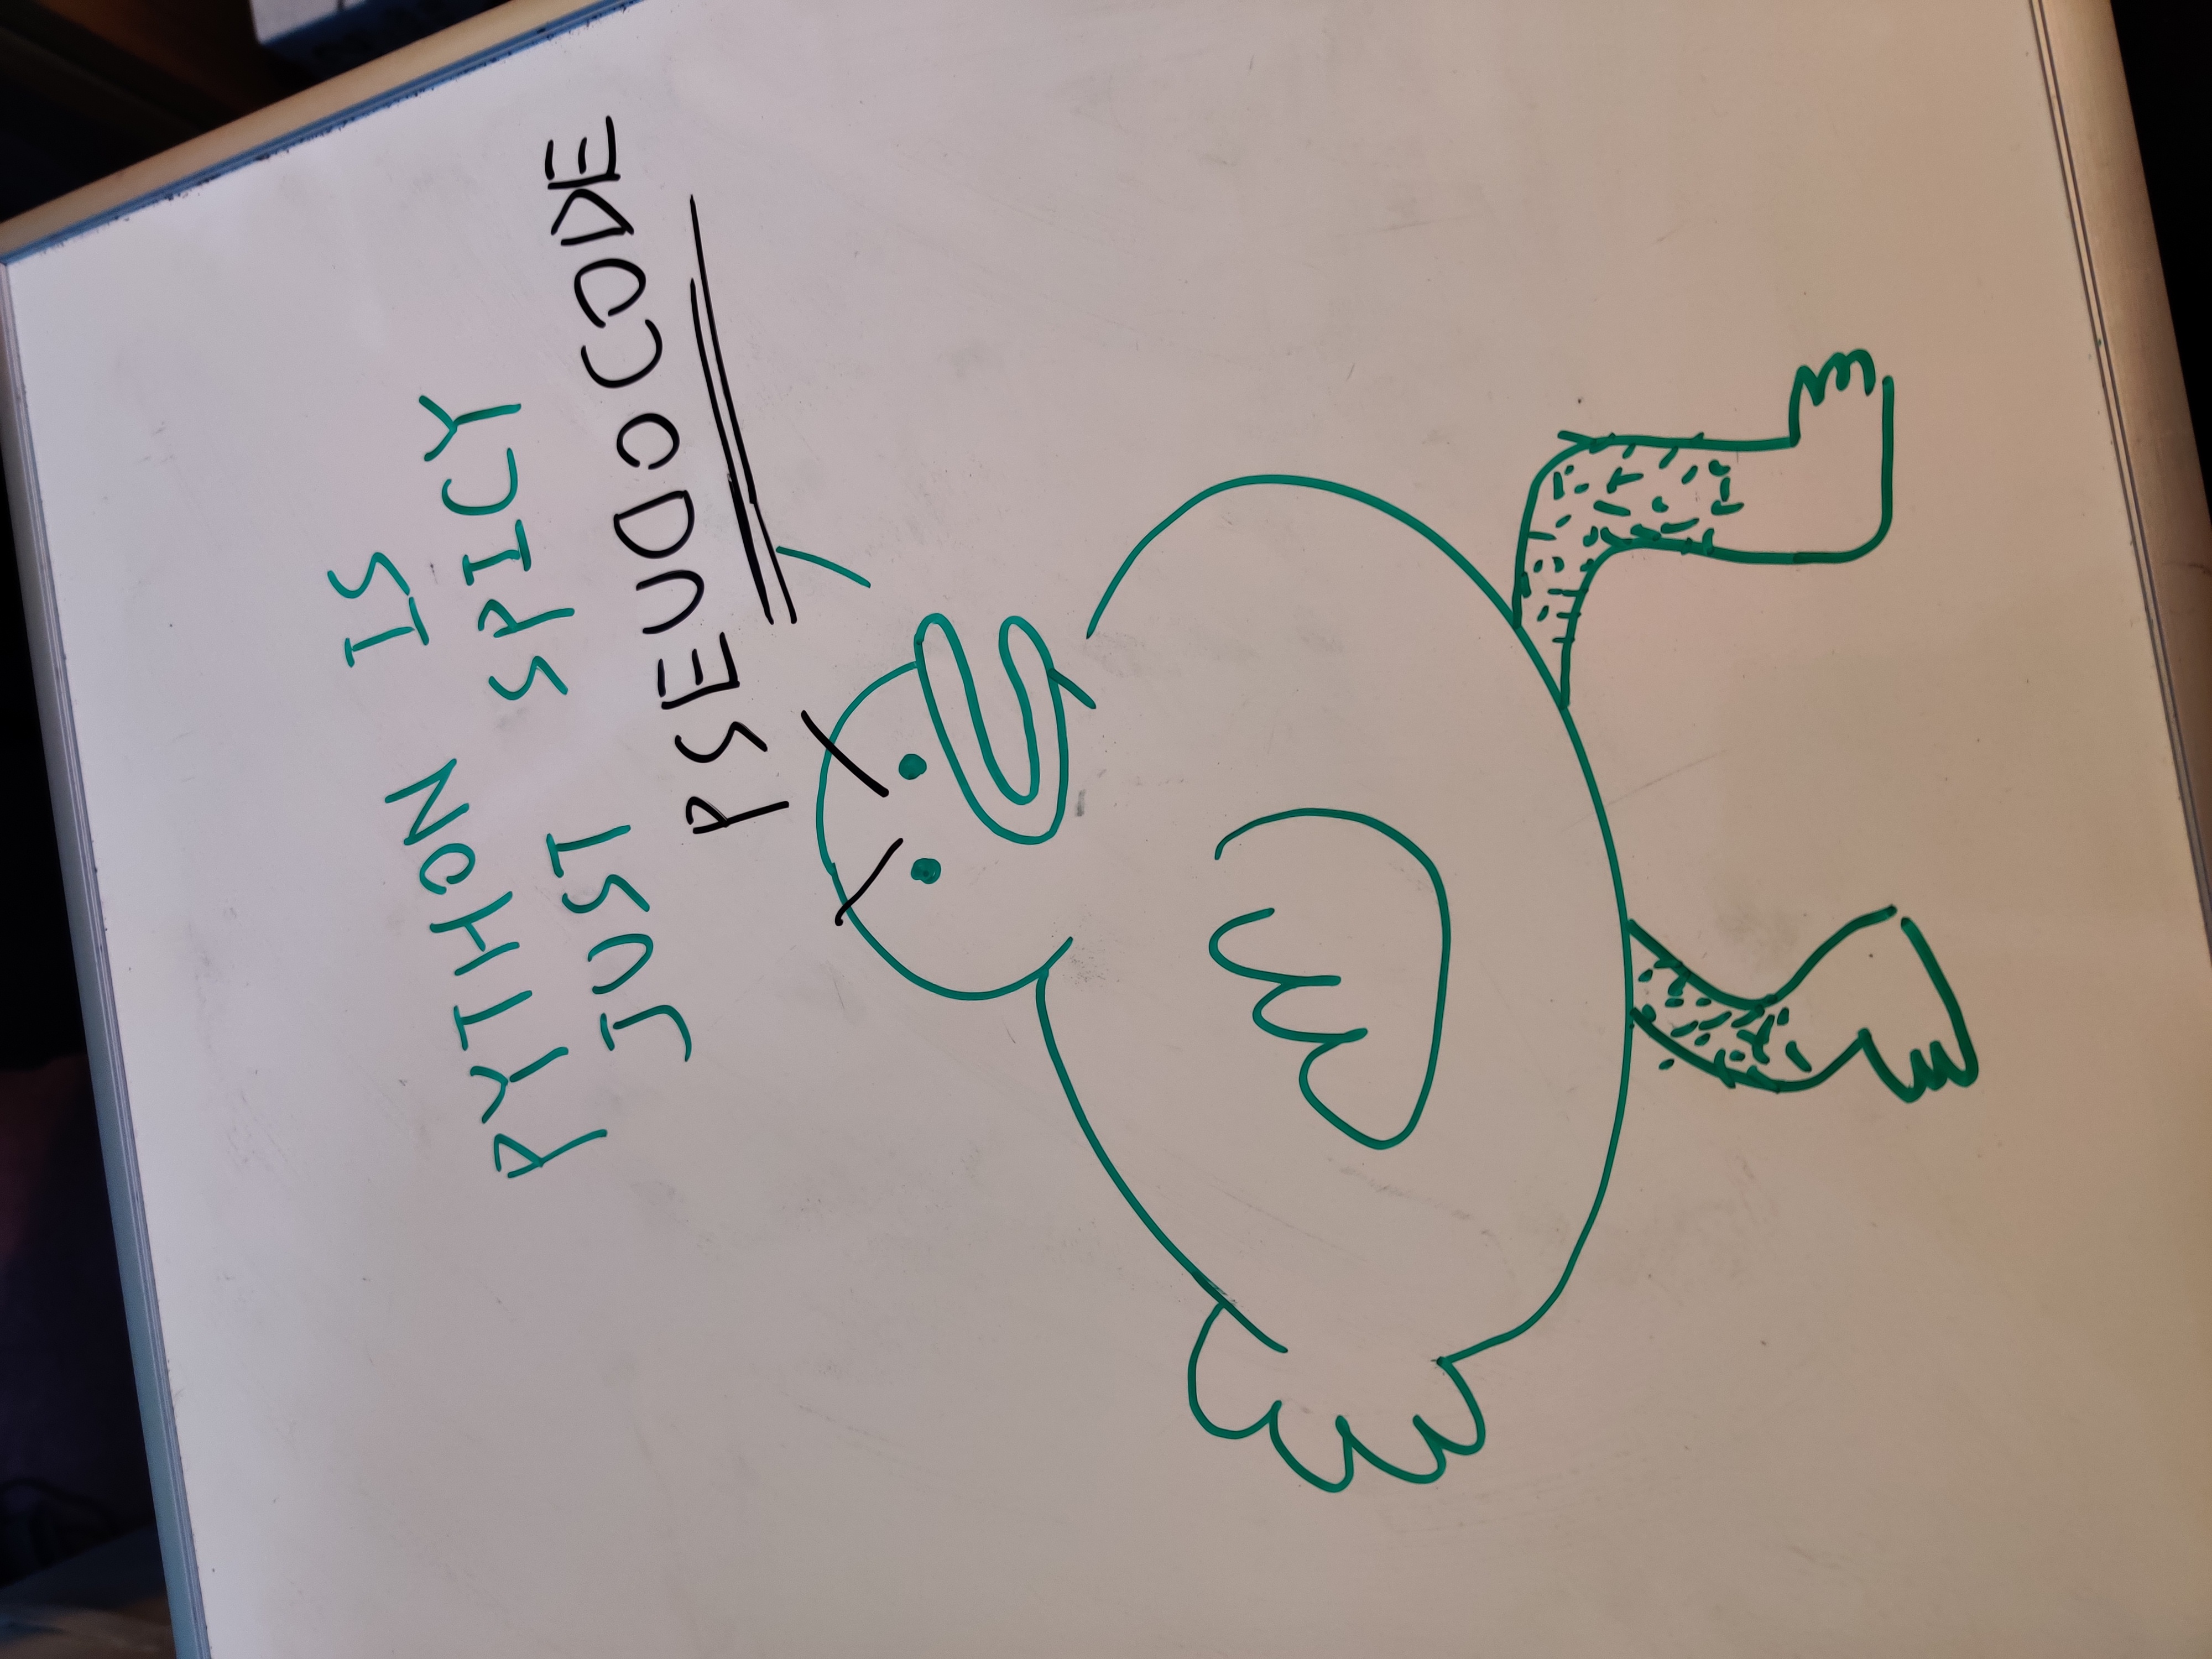 PYTHON IS
JUST SPICY
PSEUDOCODE